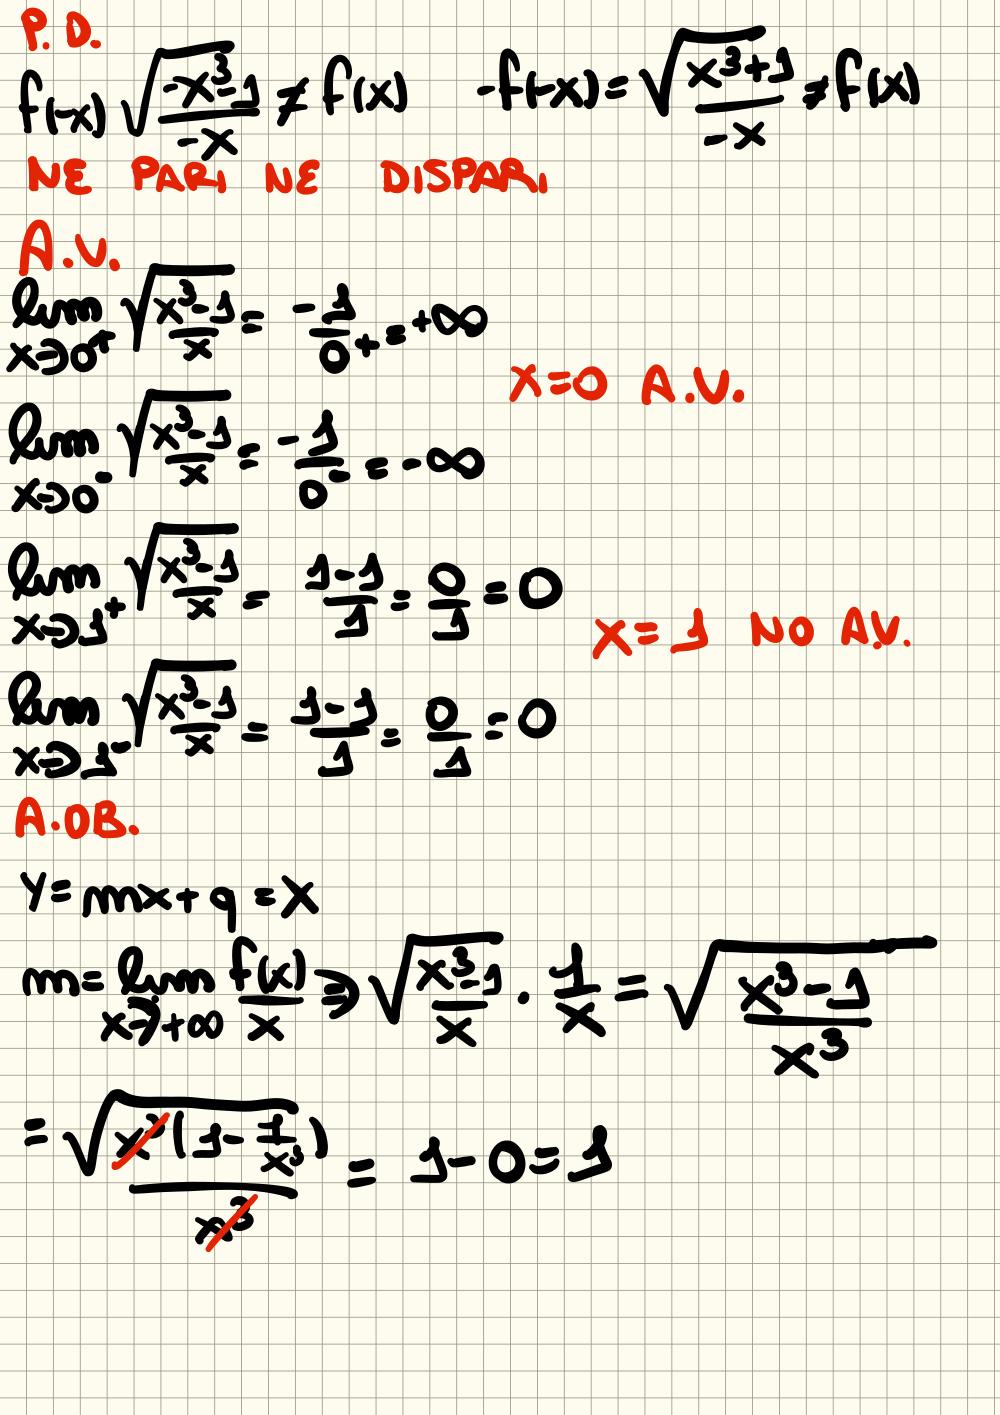 P.D.
f(-x) √(-x³-1)/(-x) ≠ f(x) -f(-x) = √(x³+1)/(-x) ≠ f(x)
NE PARI NE DISPARI
A.V.
lim x→0⁺ √(x³-1)/x = -1/0⁺ = +∞
x=0 A.V.
lim x→0⁻ √(x³-1)/x = -1/0⁻ = -∞
lim x→1⁺ √(x³-1)/x = (1-1)/1 = 0/1 = 0
x=1 NO A.V.
lim x→1⁻ √(x³-1)/x = (1-1)/1 = 0/1 = 0
A.OB.
y = mx+q = x
m = lim x→+∞ f(x)/x ⇒ √(x³-1)/x · 1/x = √(x³-1)/x³
= √x³(1-1/x³)/x³ = 1-0 = 1